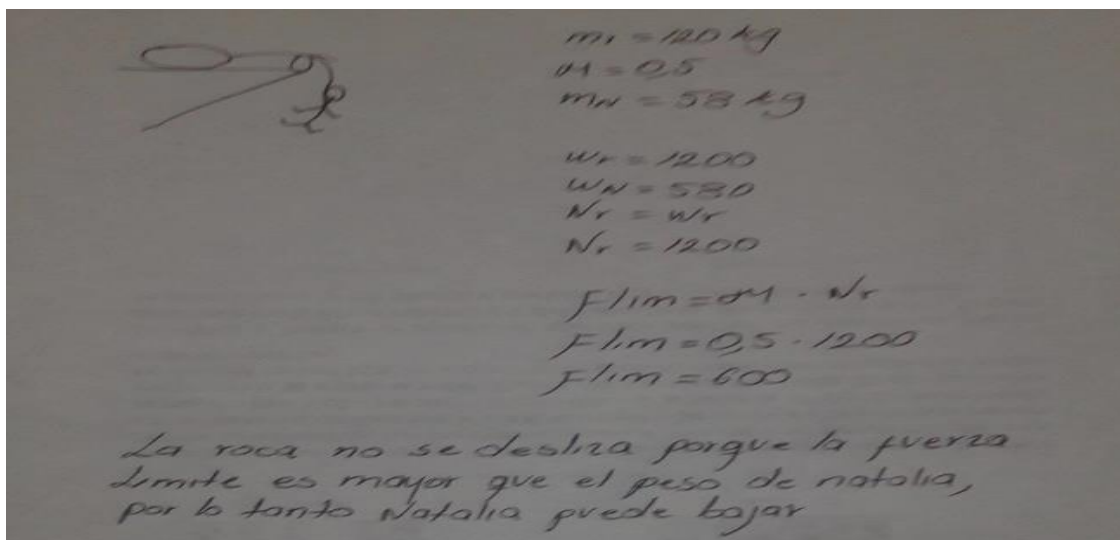 m₁ = 120 kg
M = 0,5
mN = 58 kg
Wr = 1200
WN = 580
Nr = Wr
Nr = 1200
Flim = M · Nr
Flim = 0,5 · 1200
Flim = 600
La roca no se desliza porque la fuerza
limite es mayor que el peso de natalia,
por lo tanto Natalia puede bajar